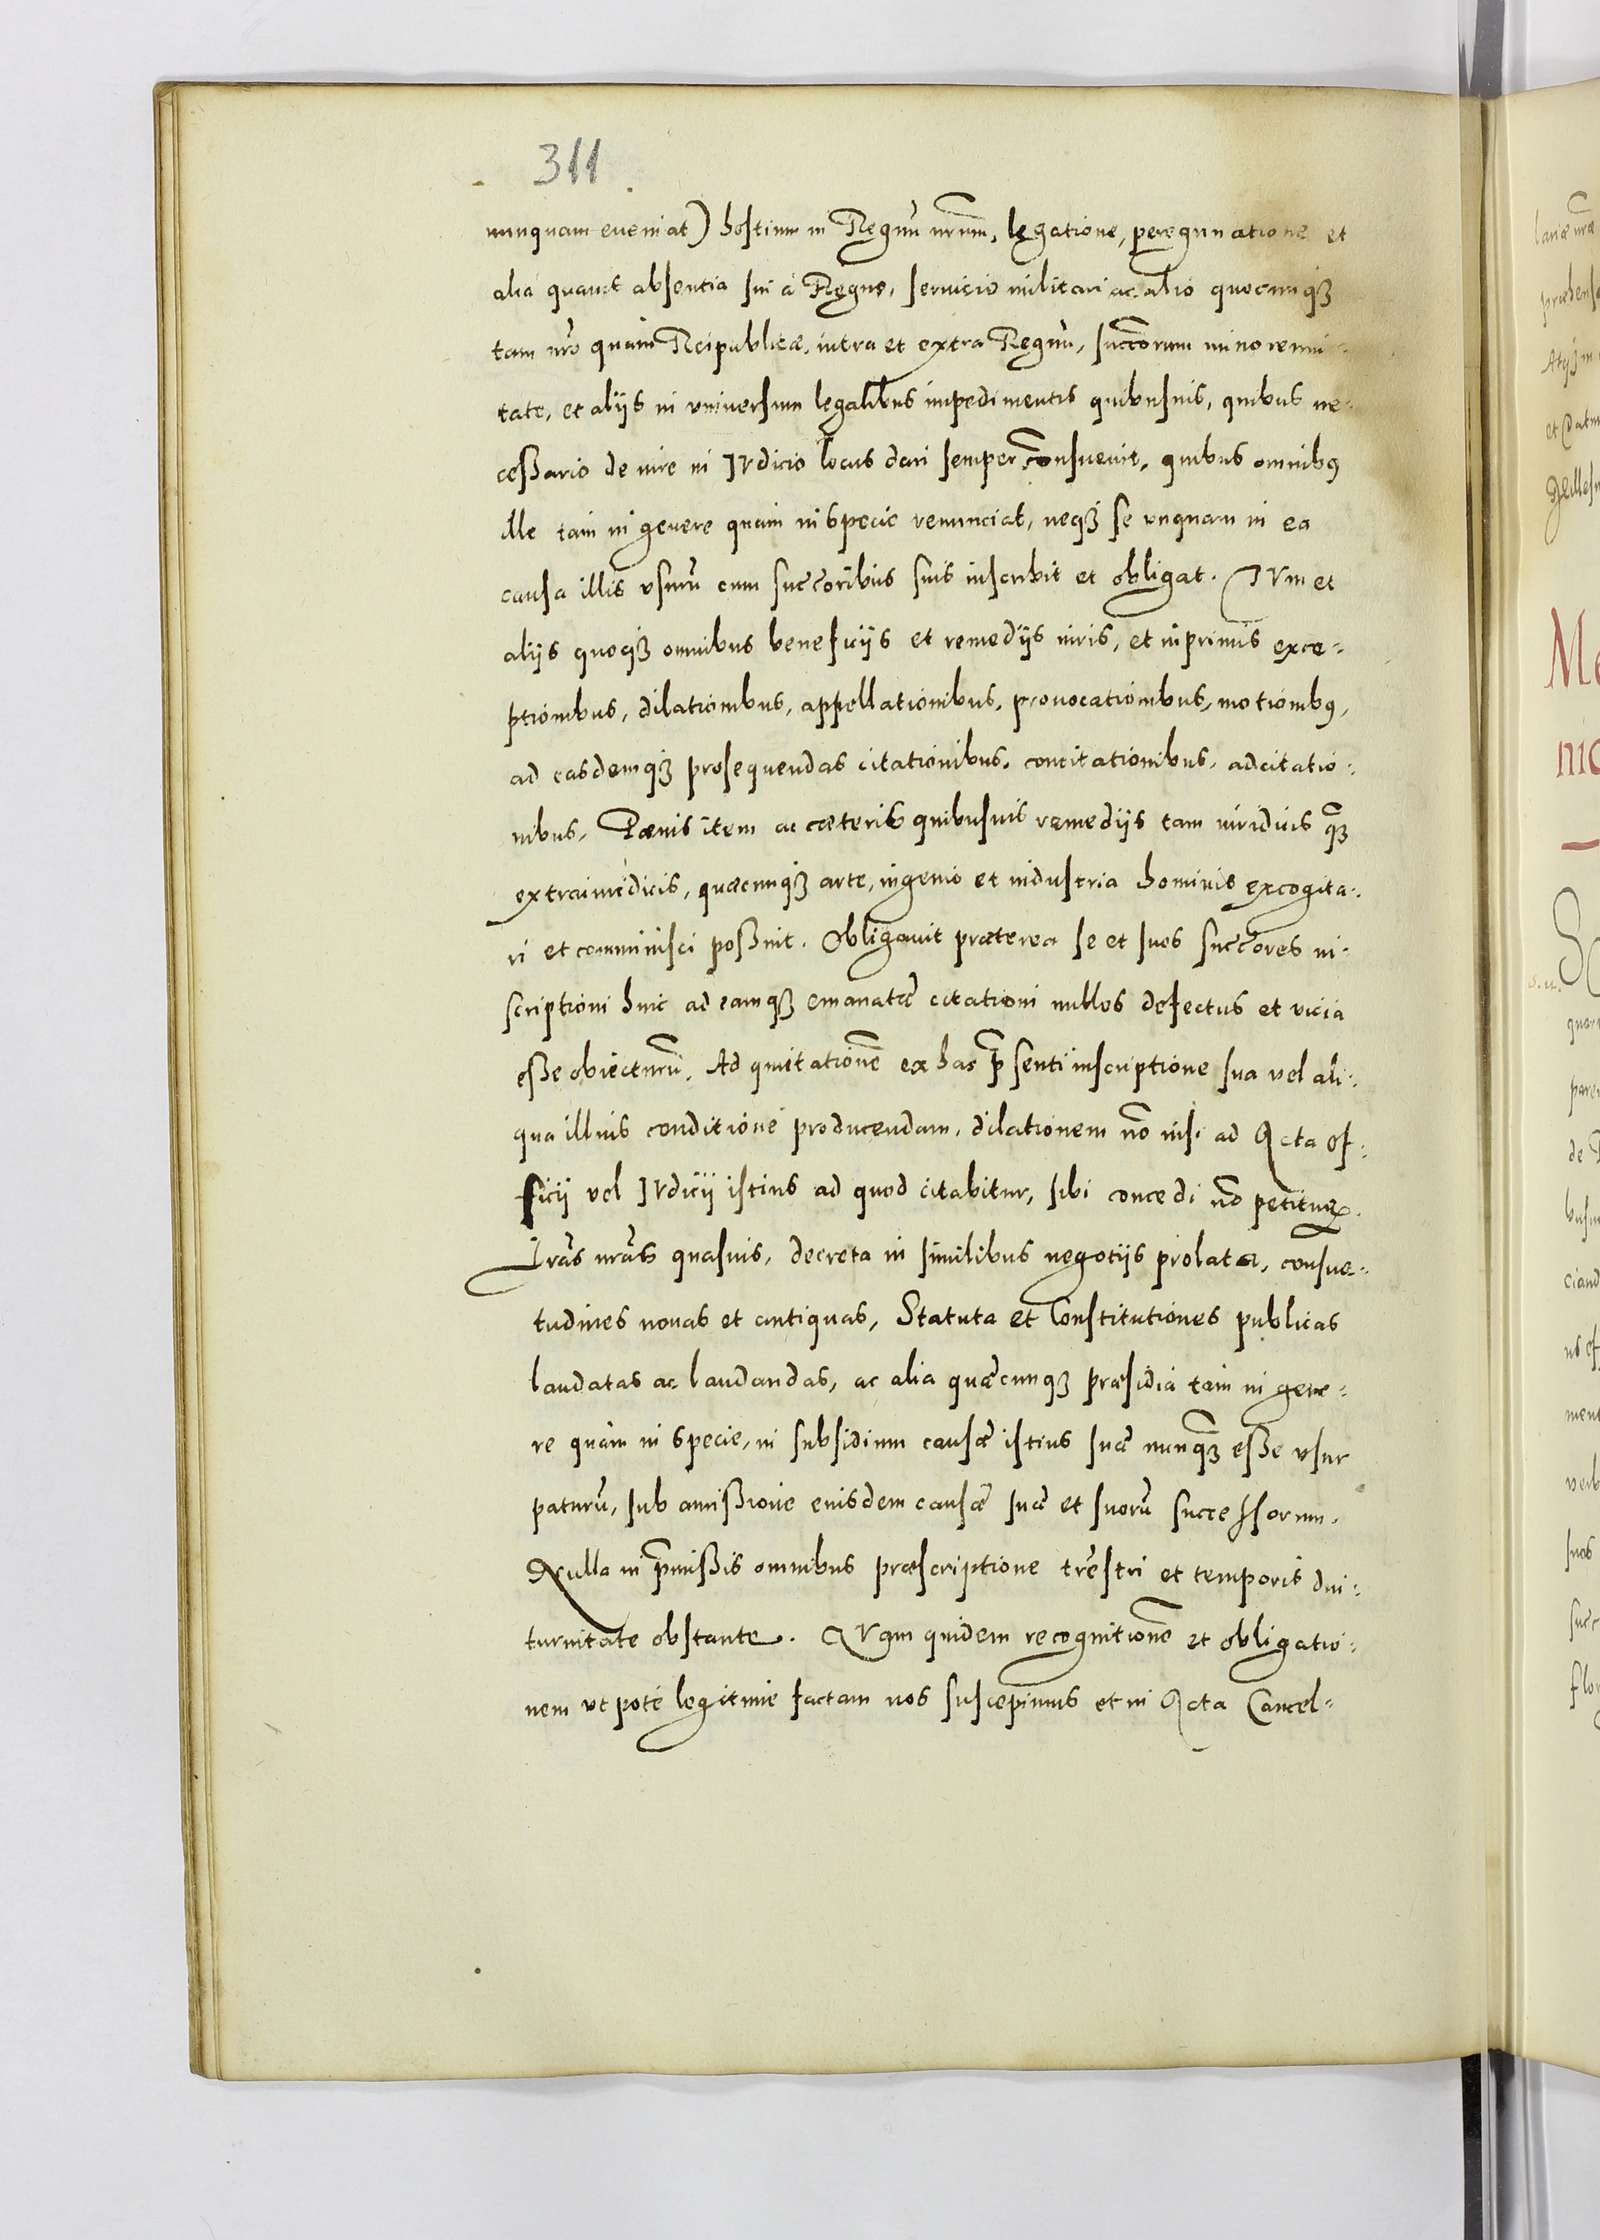 311
nunquam eueniat) hostium in Regnū nrum, legatione, peregrinatione et
alia quauis absentia sui à Regno, seruicio militari ac alio quocunqꝫ
tam nrō quàm Reipublicæ, intra et extra Regnū, succorum minorenni-
tate, et alijs in vniuersum legalibus impedimentis quibusuis, quibus ne-
ceßario de iure in Iudicio locus dari semper consueuit, quibus omnibꝰ
ille tam in genere quam in specie renunciat, neqꝫ se vnquam in ea
causa illis vsurū cum succoribus suis inscribit et obligat. Tum et
alijs quoqꝫ omnibus beneficijs et remedijs iuris, et inprimis exce-
ptionibus, dilationibus, appellationibus, prouocationibus, motionibꝰ,
ad easdemqꝫ prosequendas citationibus, concitationibus, adcitatio-
nibus, Pœnis item ac cæteris quibusuis remedijs tam iuridicis q̃ꝫ
extraiuridicis, quæcunqꝫ arte, ingenio et industria hominis excogita-
ri et comminisci poßint. Obligauit præterea se et suos succores in-
scriptioni huic ad eamqꝫ emanatæ citationi nullos defectus et vicia
eße obiecturū. Ad quitationē ex hac p̄senti inscriptione sua vel ali-
qua illius conditione producendam, dilationem nō nisi ad Acta of-
ficij vel Iudicij istius ad quod citabitur, sibi concedi nō petiturꝰ.
Lrās nrās quasuis, decreta in similibus negotijs prolata, consue-
tudines nouas et antiquas, Statuta et Constitutiones publicas
laudatas ac laudandas, ac alia quæcunqꝫ præsidia tam in gene-
re quàm in specie, in subsidium causæ istius suæ nunq̃ꝫ eße vsur
paturū, sub amißione eiusdem causæ suæ et suorū successorum.
Nulla in p̄mißis omnibus præscriptione trēstri et temporis diu-
turnitate obstante. Quam quidem recognitionē et obligatio-
nem vt pote legitime factam nos suscepimus et in Acta Cancel-